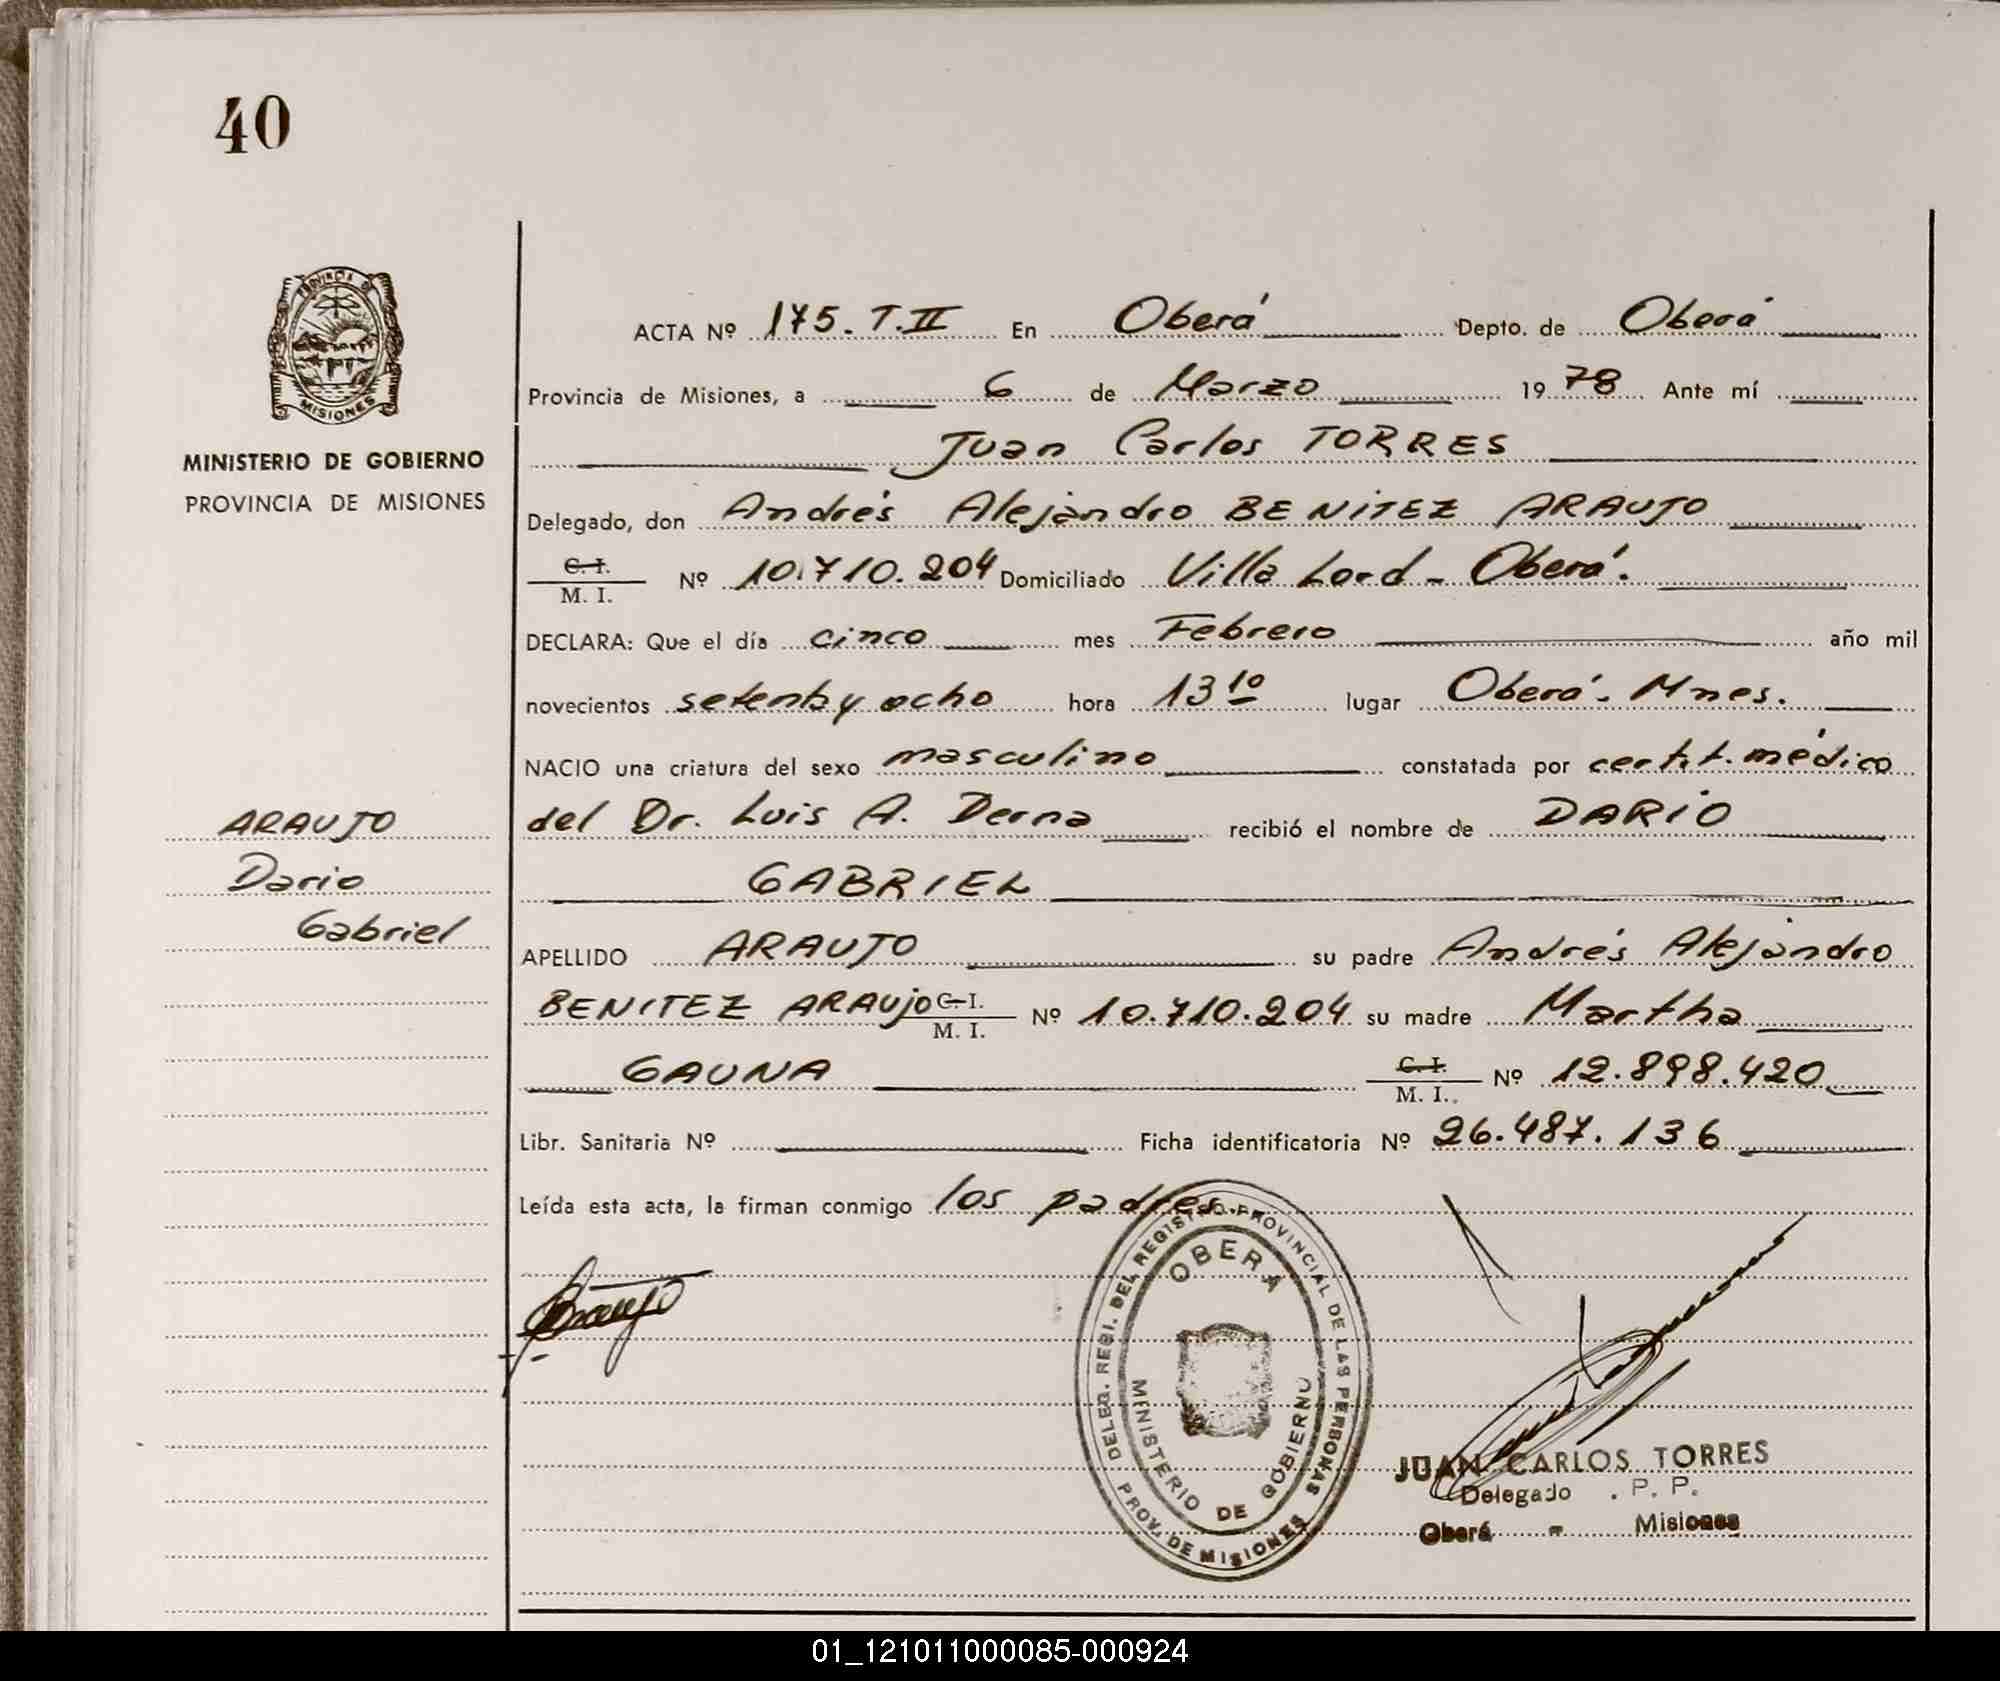 40
PROVINCIA DE
MISIONES
MINISTERIO DE GOBIERNO
PROVINCIA DE MISIONES
ARAUJO
Dario
Gabriel
ACTA Nº 175. T. II En Oberá Depto. de Oberá
Provincia de Misiones, a 6 de Marzo 1978 Ante mí
Juan Carlos TORRES
Delegado, don Andrés Alejandro BENITEZ ARAUJO
C. I. M. I. Nº 10.710.204 Domiciliado Villa Lord - Oberá.
DECLARA: Que el día cinco mes Febrero año mil
novecientos setenta y ocho hora 13 10 lugar Oberá. Mnes.
NACIO una criatura del sexo masculino constatada por certif. médico
del Dr. Luis A. Derna recibió el nombre de DARIO
GABRIEL
APELLIDO ARAUJO su padre Andrés Alejandro
BENITEZ ARAUJO C. I. M. I. Nº 10.710.204 su madre Martha
GAUNA C. I. M. I. Nº 12.898.420
Libr. Sanitaria Nº Ficha identificatoria Nº 26.487.136
Leída esta acta, la firman conmigo los padres.
DELEG. REGI. DEL REGISTRO PROVINCIAL DE LAS PERSONAS
OBERA
MINISTERIO DE GOBIERNO
PROV. DE MISIONES
JUAN CARLOS TORRES
Delegado . P. P.
Oberá - Misiones
01_121011000085-000924